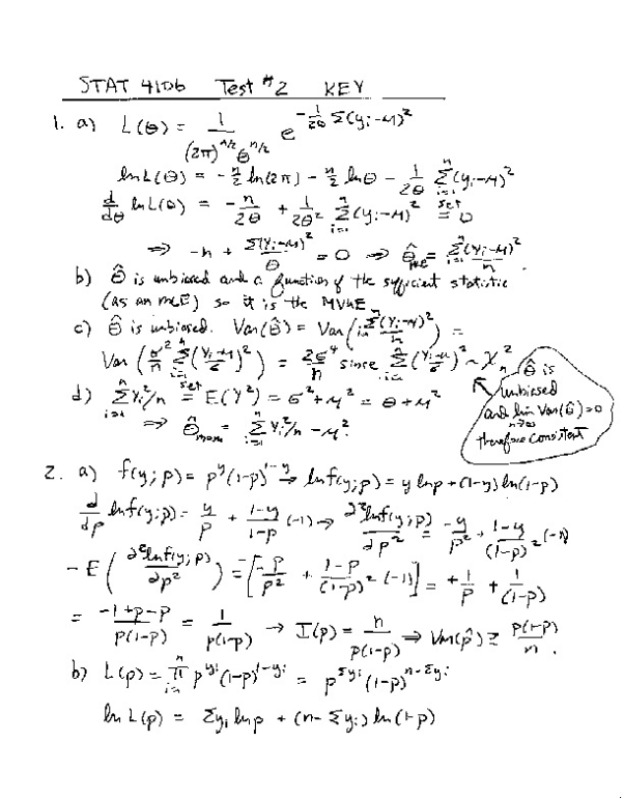 STAT 4106 Test #2 KEY
1. a) L(θ) = 1/((2π)^{n/2} θ^{n/2}) e^{-1/(2θ) Σ(y_i-μ)²}
ln L(θ) = -n/2 ln(2π) - n/2 ln θ - 1/(2θ) Σ_{i=1}^n (y_i-μ)²
d/dθ ln L(θ) = -n/(2θ) + 1/(2θ²) Σ_{i=1}^n (y_i-μ)² set= 0
⇒ -n + Σ(Y_i-μ)²/θ = 0 ⇒ θ̂_{MLE} = Σ_{i=1}^n (Y_i-μ)²/n
b) θ̂ is unbiased and a function of the sufficient statistic
(as an MLE) so it is the MVUE
c) θ̂ is unbiased. Var(θ̂) = Var(Σ_{i=1}^n (Y_i-μ)²/n) =
Var(σ²/n Σ_{i=1}^n ((Y_i-μ)/σ)²) = 2σ⁴/n since Σ_{i=1}^n ((Y_i-μ)/σ)² ~ χ²_n
θ̂ is
unbiased
and lim_{n→∞} Var(θ̂)=0
therefore consistent
d) Σ_{i=1}^n Y_i²/n set= E(Y²) = σ²+μ² = θ+μ²
⇒ θ̂_{mom} = Σ_{i=1}^n Y_i²/n - μ².
2. a) f(y;p) = p^y(1-p)^{1-y} → ln f(y;p) = y ln p + (1-y) ln(1-p)
d/dp ln f(y;p) = y/p + (1-y)/(1-p) (-1) → ∂² ln f(y;p)/∂p² = -y/p² + (1-y)/(1-p)² (-1)
-E(∂² ln f(y;p)/∂p²) = -[-p/p² + (1-p)/(1-p)² (-1)] = +1/p + 1/(1-p)
= (-1+p-p)/(p(1-p)) = 1/(p(1-p)) → I(p) = n/(p(1-p)) ⇒ Var(p̂) ≥ p(1-p)/n.
b) L(p) = Π_{i=1}^n p^{y_i}(1-p)^{1-y_i} = p^{Σy_i}(1-p)^{n-Σy_i}
ln L(p) = Σy_i ln p + (n-Σy_i) ln(1-p)